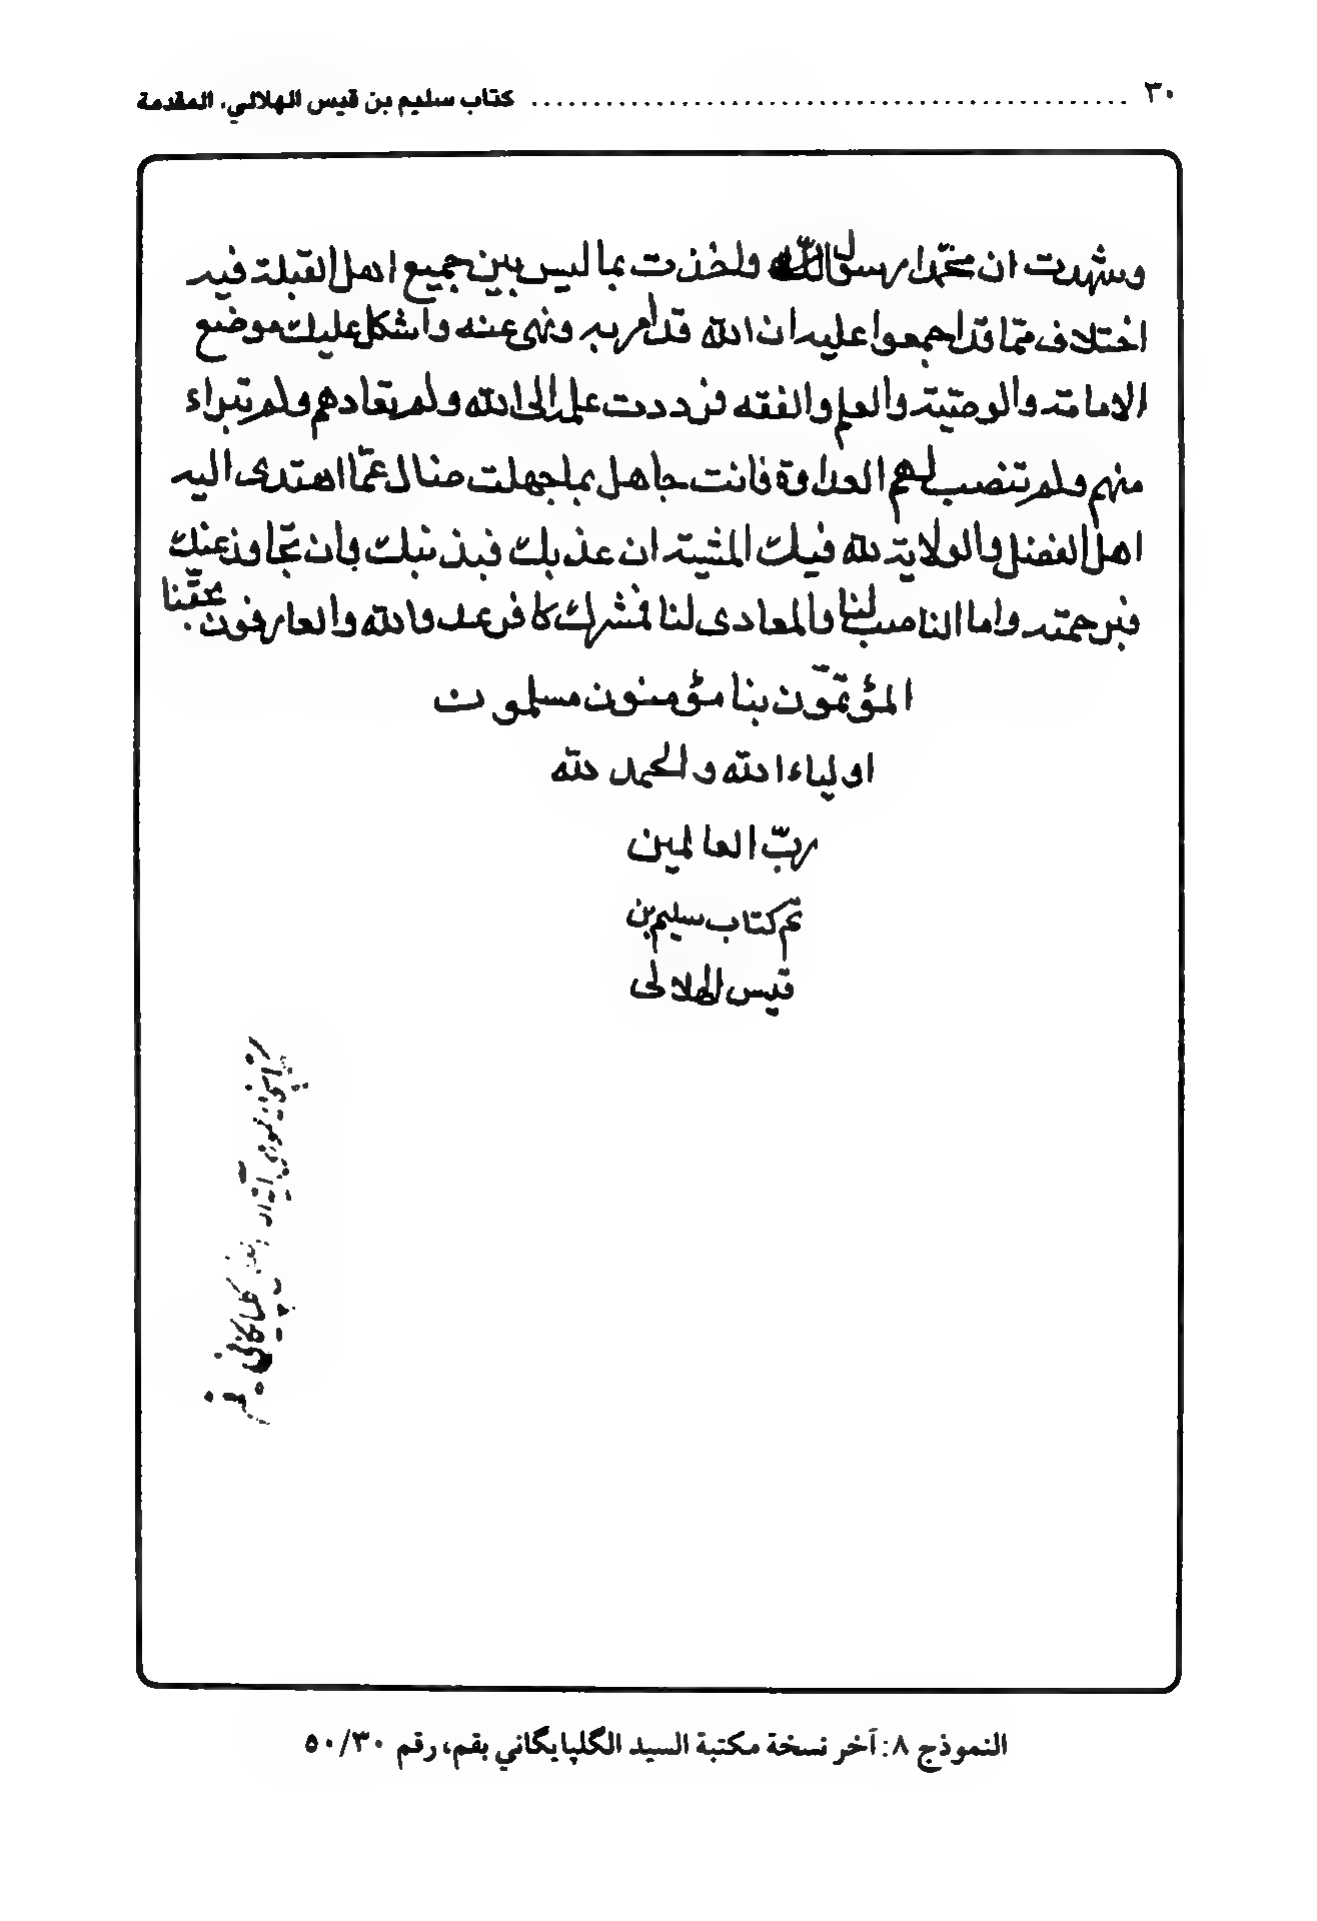 ٣٠ ........................................ كتاب سليم بن قيس الهلالي، المقدمة
وشهدت ان محمّدا رسول اللّه واخذت بما ليس بين جميع اهل القبلة فيه
اختلاف ممّا قد اجمعوا عليه ان اللّه قد امر به ونهى عنه واشكل عليك موضع
الامامة والوصيّة والعلم والفقه فرددت علمه الى اللّه ولم تعادهم ولم تبراء
منهم ولم تنصب لهم العداوة فانت جاهل بما جهلت ضال عمّا اهتدى اليه
اهل الفضل والولاية للّه فيك المشية ان عذبك فبذنبك وان تجاوز عنك
فبرحمته واما الناصب لنا والمعادى لنا فمشرك كافر عدو اللّه والعارفون بحقّنا
المؤتمّون بنا مؤمنون مسلمون
اولياء اللّه والحمد للّه
ربّ العالمين
تم كتاب سليم بن
قيس الهلالى
كتابخانه عمومى آية اللّه
گلپايگانى - قم
النموذج ٨: آخر نسخة مكتبة السيد الگلپايگاني بقم، رقم ٥٠/٣٠